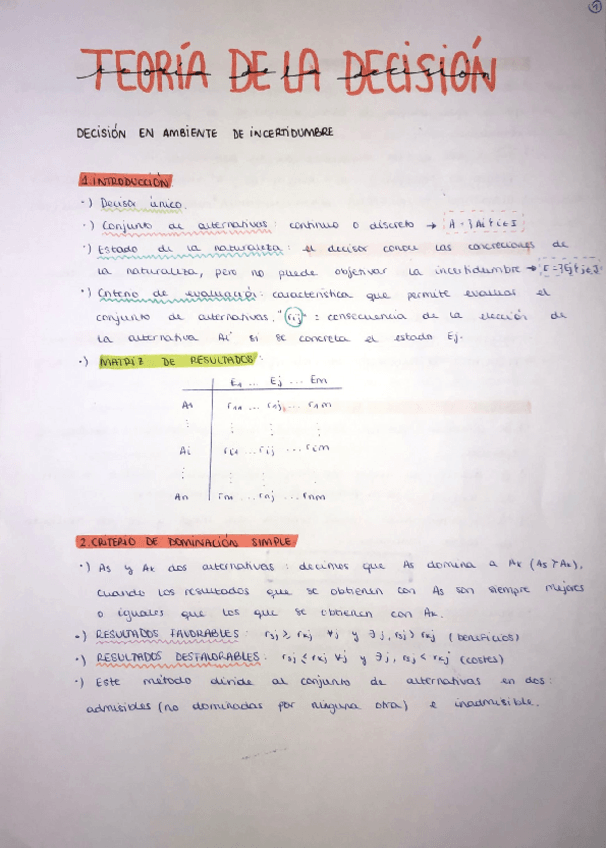 1
TEORÍA DE LA DECISIÓN
teoría de la decisión
DECISIÓN EN AMBIENTE DE INCERTIDUMBRE
1. INTRODUCCIÓN
·) Decisor único.
·) Conjunto de alternativas: continuo o discreto → A = {Ai} i∈I
·) Estado de la naturaleza: el decisor conoce las concreciones de
la naturaleza, pero no puede objetivar la incertidumbre → E = {Ej} j∈J
·) Criterio de evaluación: característica que permite evaluar el
conjunto de alternativas. "rij" = consecuencia de la elección de
la alternativa Ai si se concreta el estado Ej.
·) MATRIZ DE RESULTADOS:
E1 ... Ej ... Em
A1 r11 ... r1j ... r1m
⋮ ⋮ ⋮ ⋮
Ai ri1 ... rij ... rim
⋮ ⋮ ⋮ ⋮
An rn1 ... rnj ... rnm
2. CRITERIO DE DOMINACIÓN SIMPLE
·) As y Ak dos alternativas: decimos que As domina a Ak (As ≻ Ak),
cuando los resultados que se obtienen con As son siempre mejores
o iguales que los que se obtienen con Ak.
·) RESULTADOS FAVORABLES: rsj ≥ rkj ∀j y ∃ j, rsj > rkj (beneficios)
·) RESULTADOS DESFALORABLES: rsj ≤ rkj ∀j y ∃ j, rsj < rkj (costes)
·) Este método divide al conjunto de alternativas en dos:
admisibles (no dominadas por ninguna otra) e inadmisible.